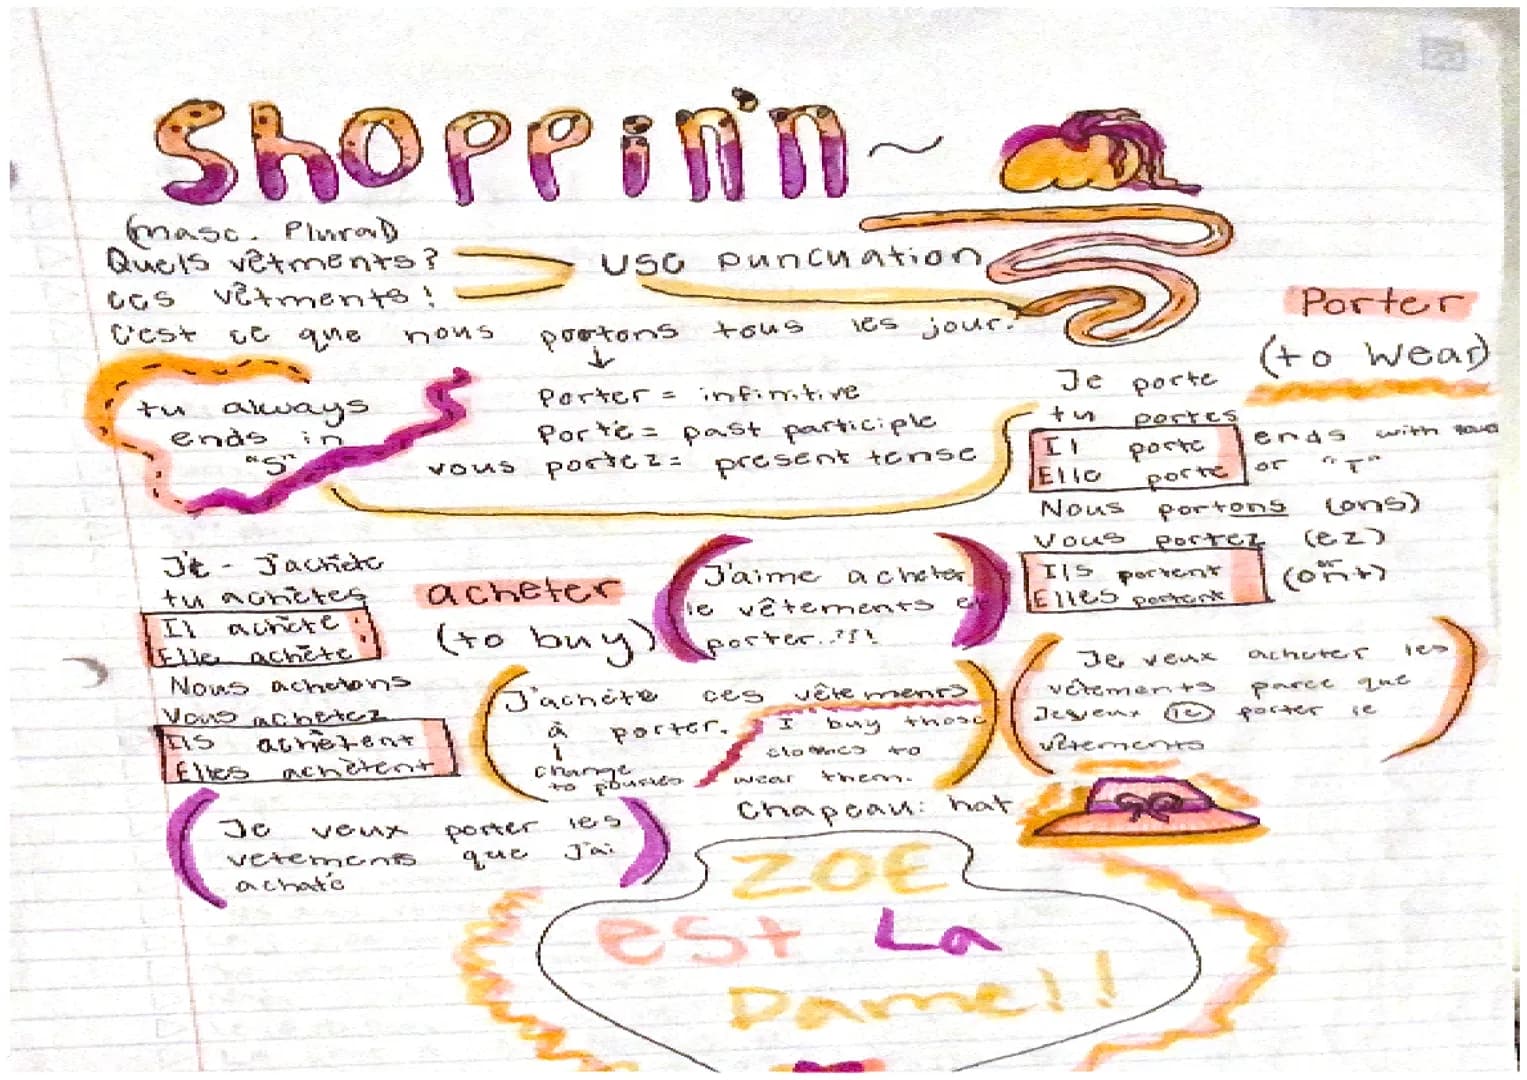 Shoppin'n ~
(masc. Plural)
Quels vêtments?
ces vêtments!
use puncuation
C'est ce que nous portons tous les jour.
Porter = infinitive
Porté = past participle
vous portez = present tense
tu always
ends in
"s"
Porter
(to wear)
Je porte
tu portes
Il porte
Elle porte
ends with
or "T"
Nous portons (ons)
Vous portez (ez)
Ils portent
Elles portent
(ont)
acheter
(to buy)
Je - J'achète
tu achètes
Il achète
Elle achète
Nous achetons
Vous achetez
Ils achètent
Elles achètent
J'aime acheter
le vêtements et
porter..?!!
J'achète ces vêtements
à porter.
change
to pour les
I buy those
clothes to
wear them.
Je veux acheter les
vêtements parce que
Je veux le porter le
vêtements
Je veux porter les
vetements que j'ai
achaté
Chapeau: hat
ZOE
est La
Dame!!